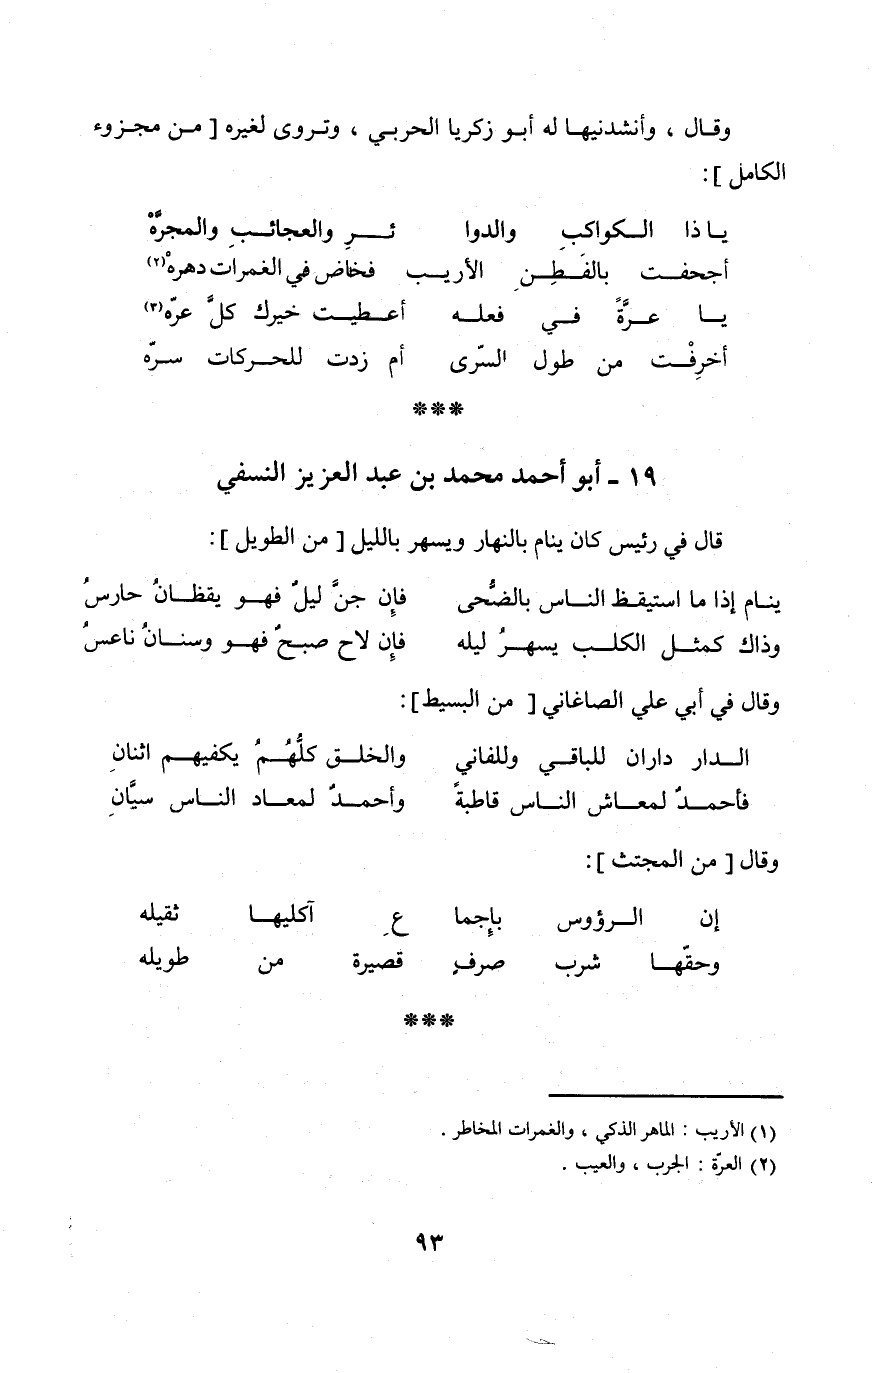 وقال ، وأنشدنيها له أبو زكريا الحربي ، وتروى لغيره [ من مجزوء
الكامل ]:
يا ذا الكواكبِ والدوا ئرِ والعجائبِ والمجرَّهْ
أجحفت بالفَطِنِ الأريب فخاض في الغمرات دهرهْ(٢)
يا عرَّةً في فعله أعطيت خيرك كلَّ عرّه(٣)
أخرِفْت من طول السّرى أم زدت للحركات سرّه
***
١٩ - أبو أحمد محمد بن عبد العزيز النسفي
قال في رئيس كان ينام بالنهار ويسهر بالليل [ من الطويل ]:
ينام إذا ما استيقظ الناس بالضُّحى فإن جنَّ ليلٌ فهو يقظانُ حارسُ
وذاك كمثل الكلب يسهرُ ليله فإن لاح صبحٌ فهو وسنانُ ناعسُ
وقال في أبي علي الصاغاني [ من البسيط ]:
الدار داران للباقي وللفاني والخلق كلُّهُمُ يكفيهم اثنانِ
فأحمدٌ لمعاش الناس قاطبةً وأحمدٌ لمعاد الناس سيَّانِ
وقال [ من المجتث ]:
إن الرؤوس بإجما عِ آكليها ثقيله
وحقّها شرب صرفٍ قصيرة من طويله
***
(١) الأريب : الماهر الذكي ، والغمرات المخاطر .
(٢) العرّة : الجرب ، والعيب .
٩٣